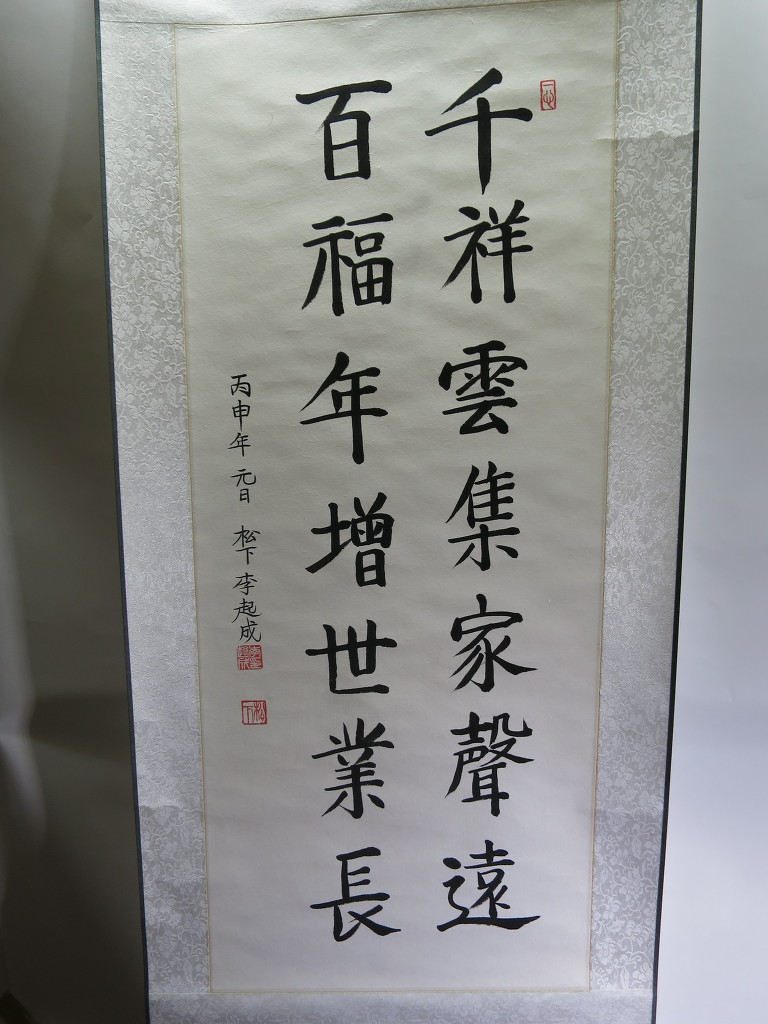 千祥雲集家聲遠
百福年增世業長
丙申年 元日 松下 李起成
松下